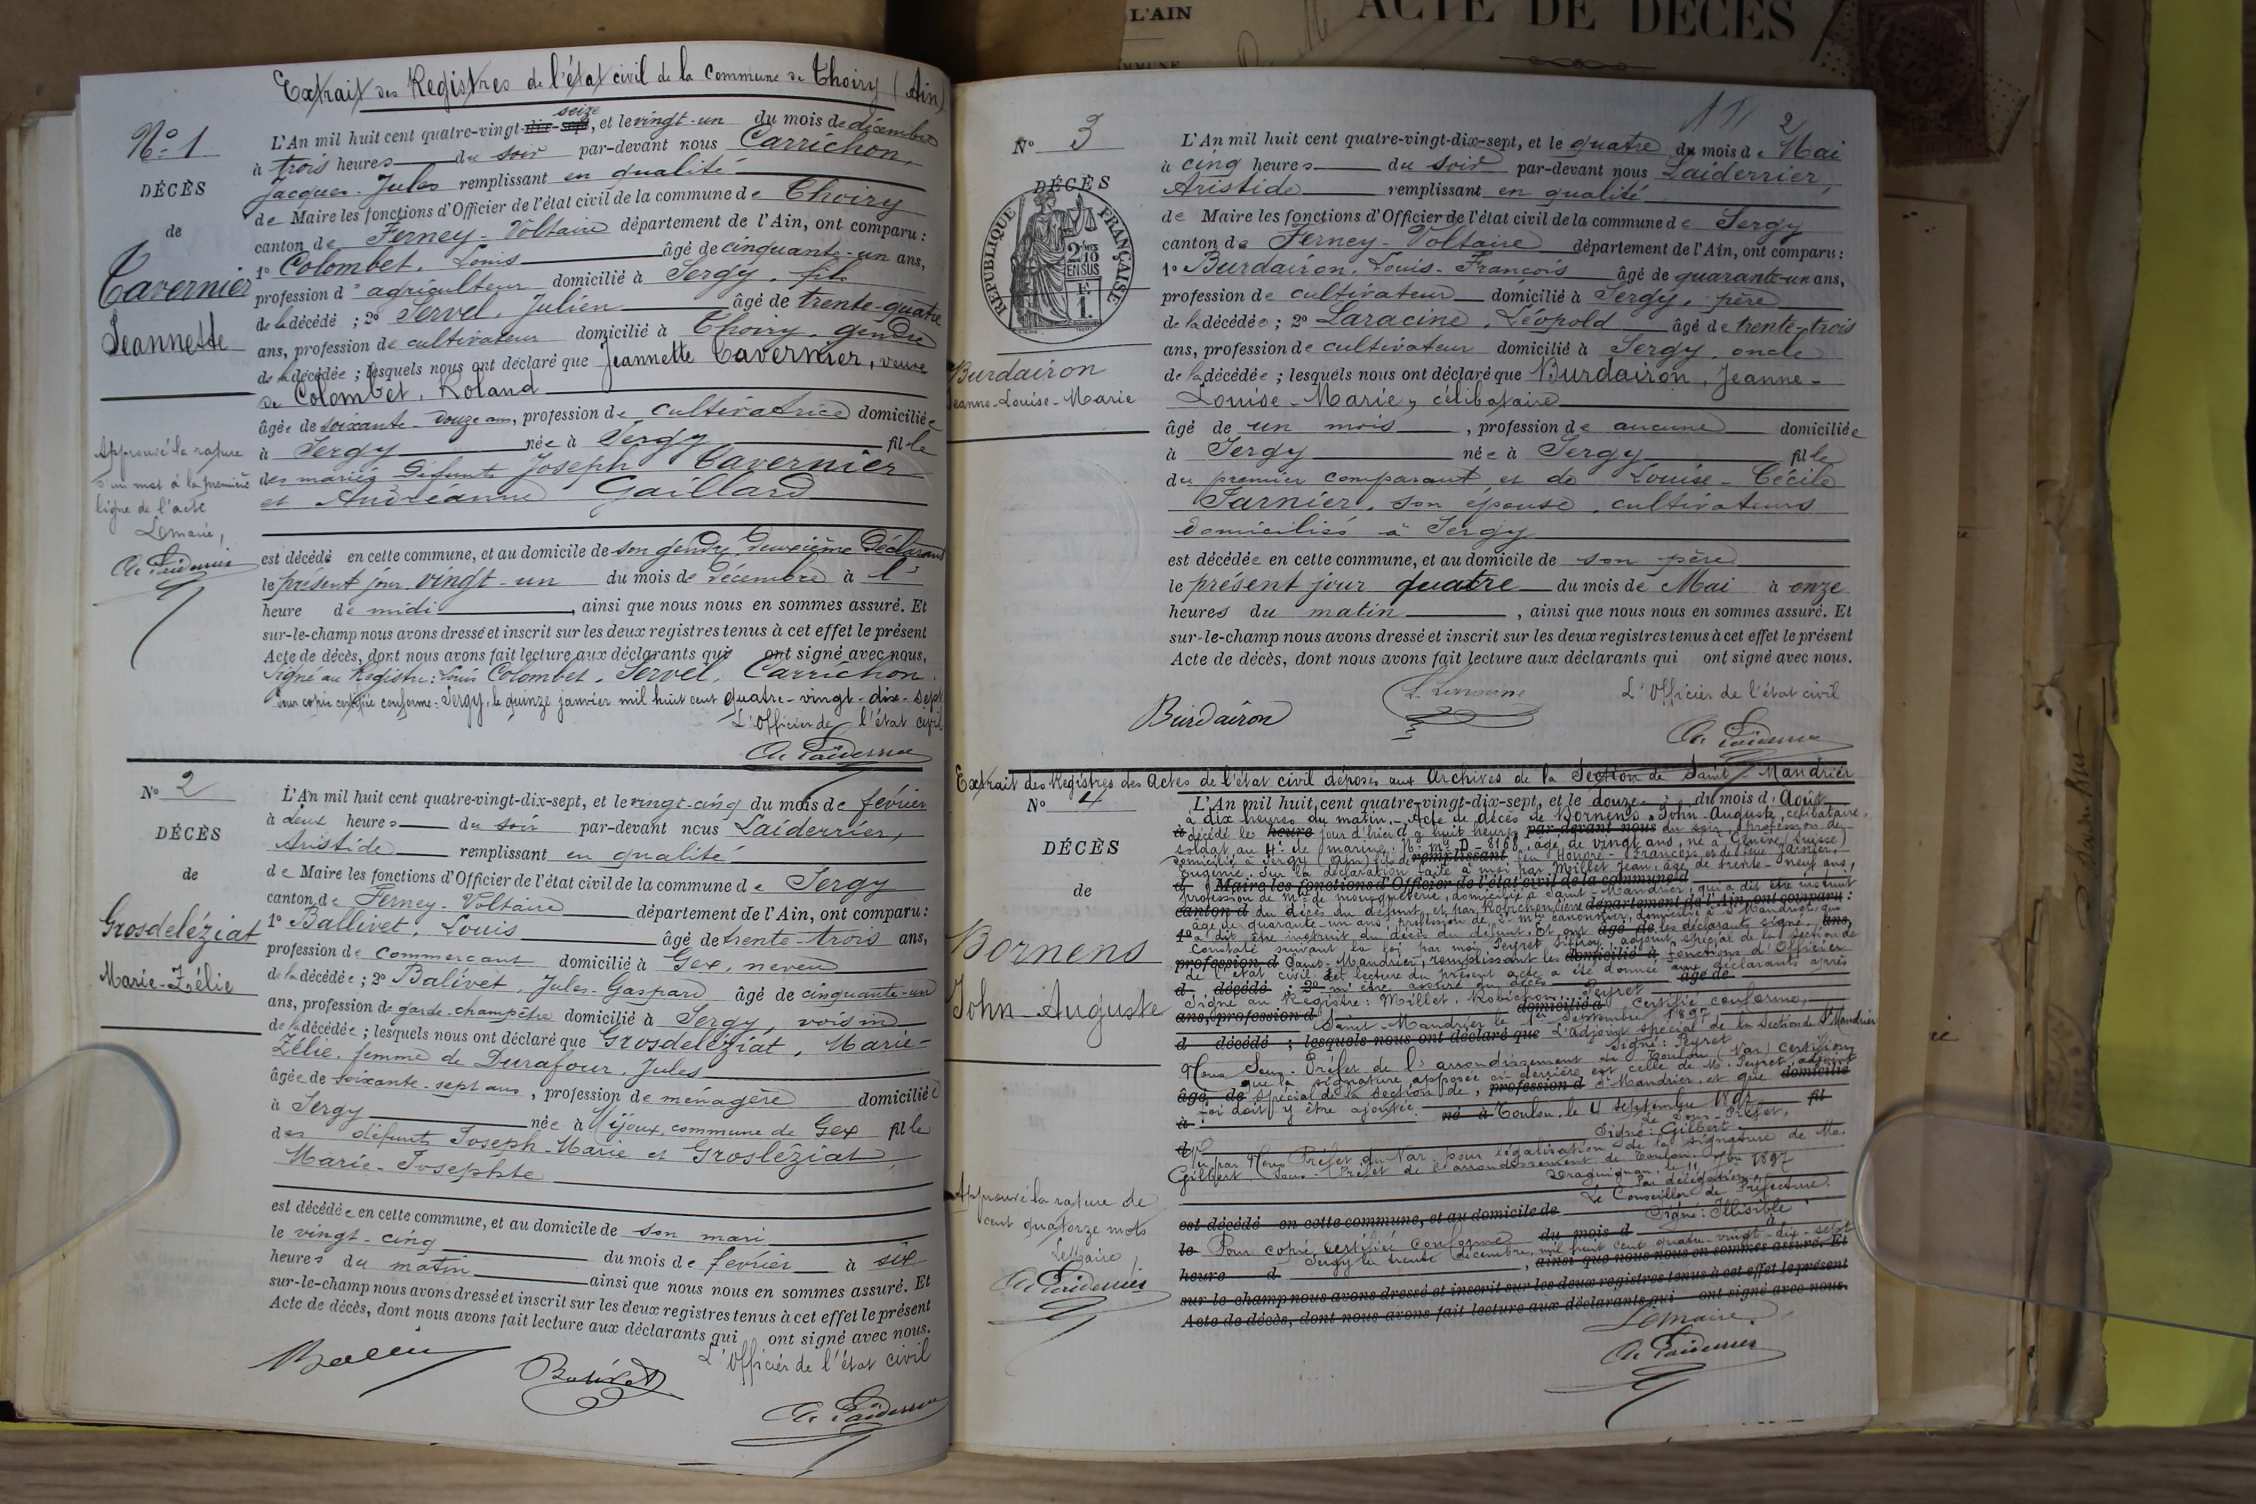 L'AIN
ACTE DE DÉCÈS
Extrait des Registres de l'état civil de la Commune de Thoiry (Ain)
N° 1
DÉCÈS
de
Tavernier
Jeannette
Approuvé la rature
d'un mot à la première
ligne de l'acte
Le maire,
L'An mil huit cent quatre-vingt-dix-sept seize, et le vingt-un du mois de décembre
à trois heures du soir par-devant nous Carrichon,
Jacques-Jules remplissant en qualité
de Maire les fonctions d'Officier de l'état civil de la commune de Thoiry
canton de Ferney-Voltaire département de l'Ain, ont comparu :
1° Colombet, Louis âgé de cinquante-un ans,
profession d'agriculteur domicilié à Sergy, fils
de la décédé ; 2° Servel, Julien âgé de trente-quatre
ans, profession de cultivateur domicilié à Thoiry, gendre
de la décédée ; lesquels nous ont déclaré que Jeannette Tavernier, veuve
de Colombet, Roland
âgée de soixante-douze ans, profession de cultivatrice domiciliée
à Sergy née à Sergy fille
des mariés défunts Joseph Tavernier
et Andréanne Gaillard
est décédé en cette commune, et au domicile de son gendre, deuxième déclarant
le présent jour vingt-un du mois de décembre à l'
heure de midi, ainsi que nous nous en sommes assuré. Et
sur-le-champ nous avons dressé et inscrit sur les deux registres tenus à cet effet le présent
Acte de décès, dont nous avons fait lecture aux déclarants qui ont signé avec nous.
Signé au Registre : Louis Colombet, Servel, Carrichon.
Pour copie certifiée conforme. Sergy, le quinze janvier mil huit cent quatre-vingt-dix-sept
L'Officier de l'état civil
N° 2
DÉCÈS
de
Grosdeléziat
Marie-Zélie
L'An mil huit cent quatre-vingt-dix-sept, et le vingt-cinq du mois de février
à deux heures du soir par-devant nous Laiderrier,
Aristide remplissant en qualité
de Maire les fonctions d'Officier de l'état civil de la commune de Sergy
canton de Ferney-Voltaire département de l'Ain, ont comparu :
1° Ballivet, Louis âgé de trente-trois ans,
profession de commerçant domicilié à Gex, neveu
de la décédée ; 2° Balivet, Jules-Gaspard âgé de cinquante-un
ans, profession de garde-champêtre domicilié à Sergy, voisin
de la décédée ; lesquels nous ont déclaré que Grosdeléziat, Marie-
Zélie, femme de Durafour, Jules
âgée de soixante-sept ans, profession de ménagère domiciliée
à Sergy née à Mijoux, commune de Gex fille
des défunts Joseph-Marie et Grosléziat,
Marie-Josephte
est décédée en cette commune, et au domicile de son mari
le vingt-cinq du mois de février à six
heures du matin ainsi que nous nous en sommes assuré. Et
sur-le-champ nous avons dressé et inscrit sur les deux registres tenus à cet effet le présent
Acte de décès, dont nous avons fait lecture aux déclarants qui ont signé avec nous.
L'Officier de l'état civil
Balivet
2
N° 3
DÉCÈS
RÉPUBLIQUE FRANÇAISE
2/10
EN SUS
Burdairon
Jeanne-Louise-Marie
L'An mil huit cent quatre-vingt-dix-sept, et le quatre du mois de Mai
à cinq heures du soir par-devant nous Laiderrier,
Aristide remplissant en qualité
de Maire les fonctions d'Officier de l'état civil de la commune de Sergy
canton de Ferney-Voltaire département de l'Ain, ont comparu :
1° Burdairon, Louis-François âgé de quarante-un ans,
profession de cultivateur domicilié à Sergy, père
de la décédée ; 2° Laracine, Léopold âgé de trente-trois
ans, profession de cultivateur domicilié à Sergy, oncle
de la décédée ; lesquels nous ont déclaré que Burdairon, Jeanne-
Louise-Marie, célibataire
âgé de un mois, profession de aucune domiciliée
à Sergy née à Sergy fille
du premier comparant et de Louise-Cécile
Tarnier, son épouse, cultivateurs
domiciliés à Sergy
est décédée en cette commune, et au domicile de son père
le présent jour quatre du mois de Mai à onze
heures du matin, ainsi que nous nous en sommes assuré. Et
sur-le-champ nous avons dressé et inscrit sur les deux registres tenus à cet effet le présent
Acte de décès, dont nous avons fait lecture aux déclarants qui ont signé avec nous.
L'Officier de l'état civil
Burdairon
Extrait des Registres des Actes de l'état civil déposés aux Archives de la Section de Saint Mandrier
N° 4
DÉCÈS
de
Bornens
John-Auguste
Approuvé la rature de
cent quatorze mots
Le Maire,
L'An mil huit cent quatre-vingt-dix-sept, et le douze du mois d'Août
à dix heures du matin. Acte de décès de Bornens, John-Auguste, célibataire,
décédé le jour d'hier à huit heures du soir, profession de
soldat au 4e de marine, N° 8168, âgé de vingt ans, né à Genève (Suisse)
domicilié à Sergy (Ain) fils de feu Honoré-François et de
Eugénie. Sur la déclaration faite à moi par Millet Jean, âgé de trente-neuf ans,
Maire les fonctions d'Officier de l'état civil de la commune d
profession de domicilié à Saint-Mandrier, qui a dit être instruit
du décès du défunt, et par Robichon, Pierre
âgé de quarante-un ans, profession de canonnier, domicilié à St Mandrier, qui
a dit être instruit du décès du défunt. Et ont les déclarants signé.
Constaté suivant la loi par moi Peyret adjoint spécial de la section de
Saint-Mandrier, remplissant les fonctions d'Officier
de l'état civil. Lecture du présent acte a été donnée aux déclarants après
m'être assuré du décès.
Signé au Registre : Millet, Robichon, Peyret
Certifié conforme,
Saint-Mandrier le 1er Septembre 1897
L'adjoint spécial de la Section de St Mandrier
Signé : Peyret
Nous Sous-Préfet de l'arrondissement de Toulon (Var) certifions
que la signature apposée ci-dernière est celle de M. Peyret, adjoint
spécial de la section de St Mandrier, et que
foi doit y être ajoutée. Toulon, le 4 septembre 1897
Le Sous-Préfet,
Signé : Gilbert
Vu par Nous Préfet du Var, pour légalisation de la signature de M.
Gilbert, Sous-Préfet de l'arrondissement de Toulon.
Draguignan, le 11 7bre 1897
Par délégation,
Le Conseiller de Préfecture.
Signé : Illisible
est décédé en cette commune, et au domicile de
Pour copie certifiée conforme
Sergy le trente décembre, mil huit cent quatre-vingt-dix-sept
heure d, ainsi que nous nous en sommes assuré. Et
sur-le-champ nous avons dressé et inscrit sur les deux registres tenus à cet effet le présent
Acte de décès, dont nous avons fait lecture aux déclarants qui ont signé avec nous.
Le maire.